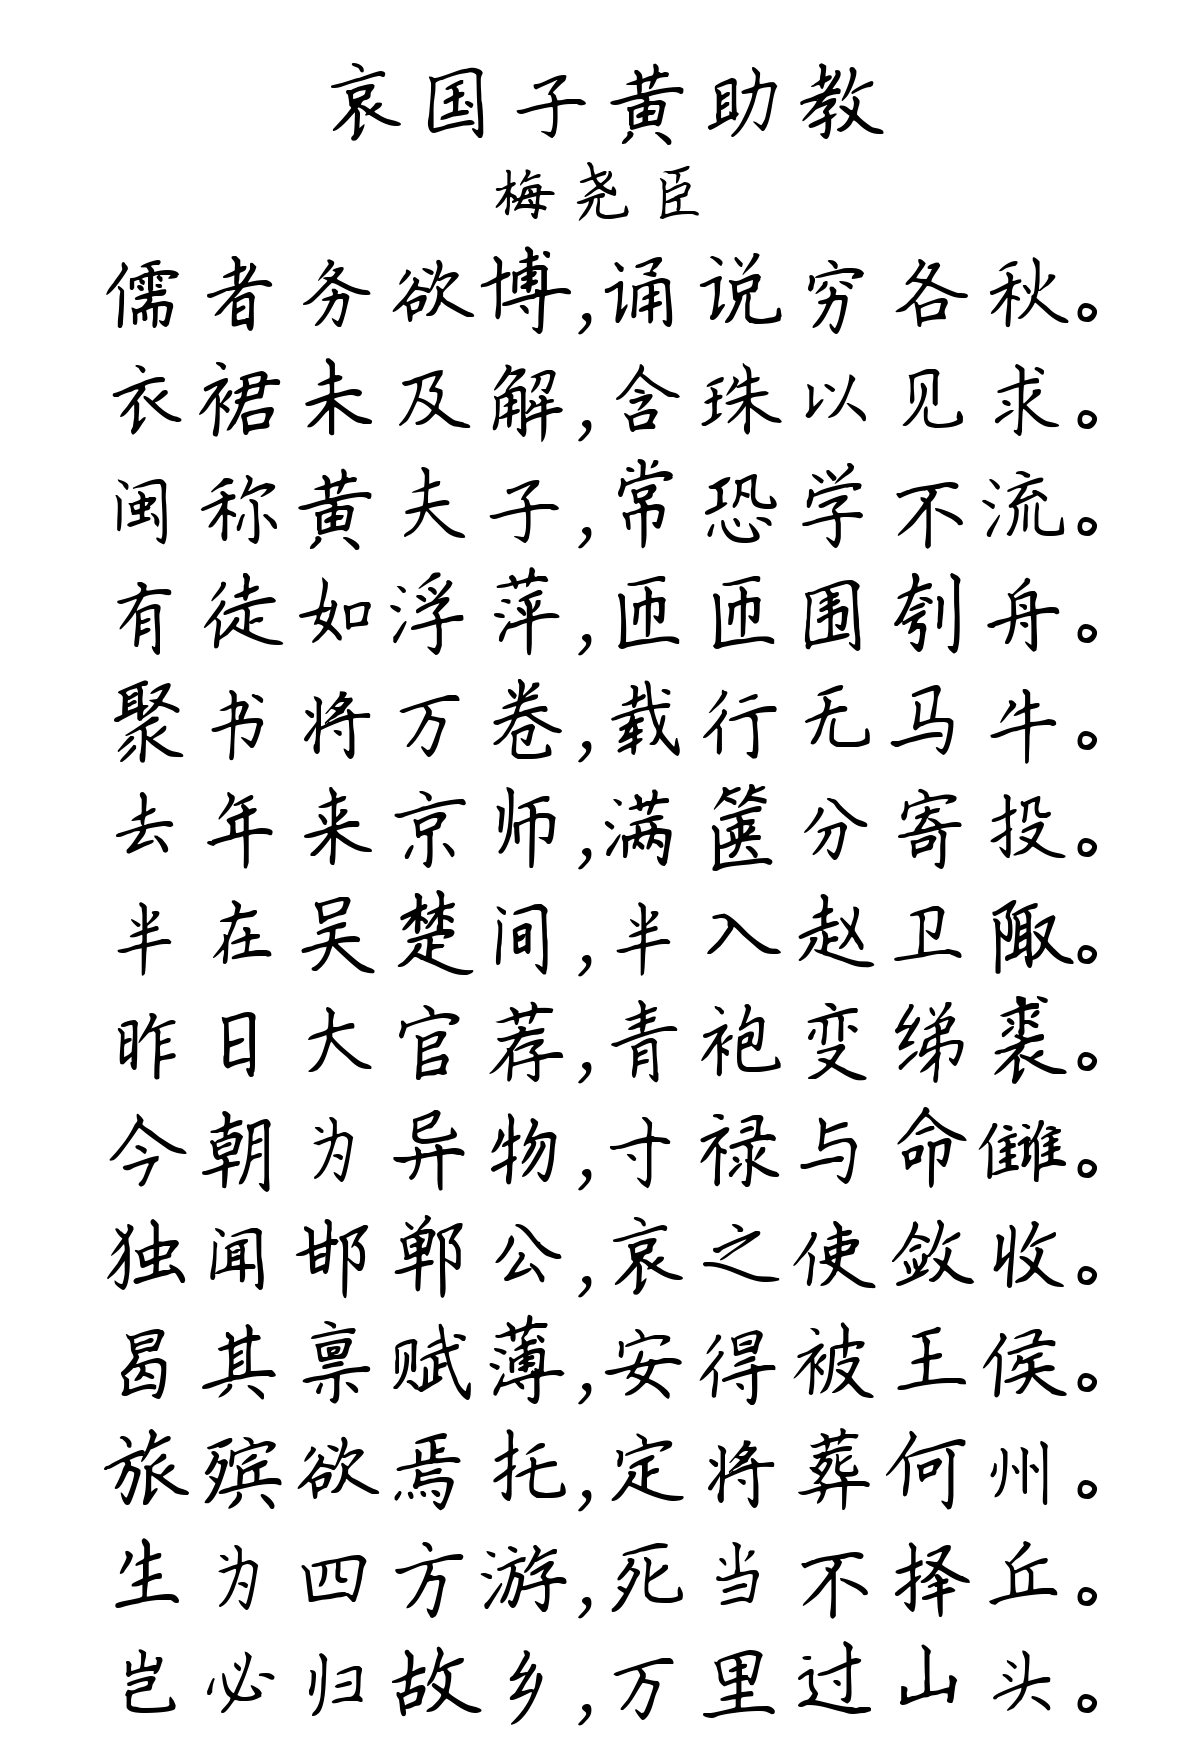 哀国子黄助教
梅尧臣
儒者务欲博,诵说穷各秋。
衣裙未及解,含珠以见求。
闽称黄夫子,常恐学不流。
有徒如浮萍,匝匝围刳舟。
聚书将万卷,载行无马牛。
去年来京师,满箧分寄投。
半在吴楚间,半入赵卫陬。
昨日大官荐,青袍变绨裘。
今朝为异物,寸禄与命雠。
独闻邯郸公,哀之使敛收。
曷其禀赋薄,安得被王侯。
旅殡欲焉托,定将葬何州。
生为四方游,死当不择丘。
岂必归故乡,万里过山头。